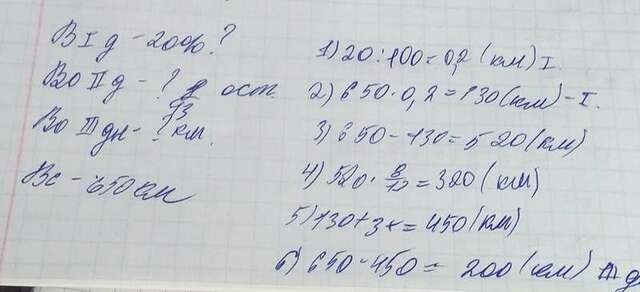 В I д - 20%?
Во II д - ? 8/13 ост.
Во III дн - ? км.
Вс - 650 км
1) 20 : 100 = 0,2 (км) I.
2) 650 · 0,2 = 130 (км) - I.
3) 650 - 130 = 520 (км)
4) 520 · 8/13 = 320 (км)
5) 130 + 3 = 450 (км)
6) 650 - 450 = 200 (км) III д